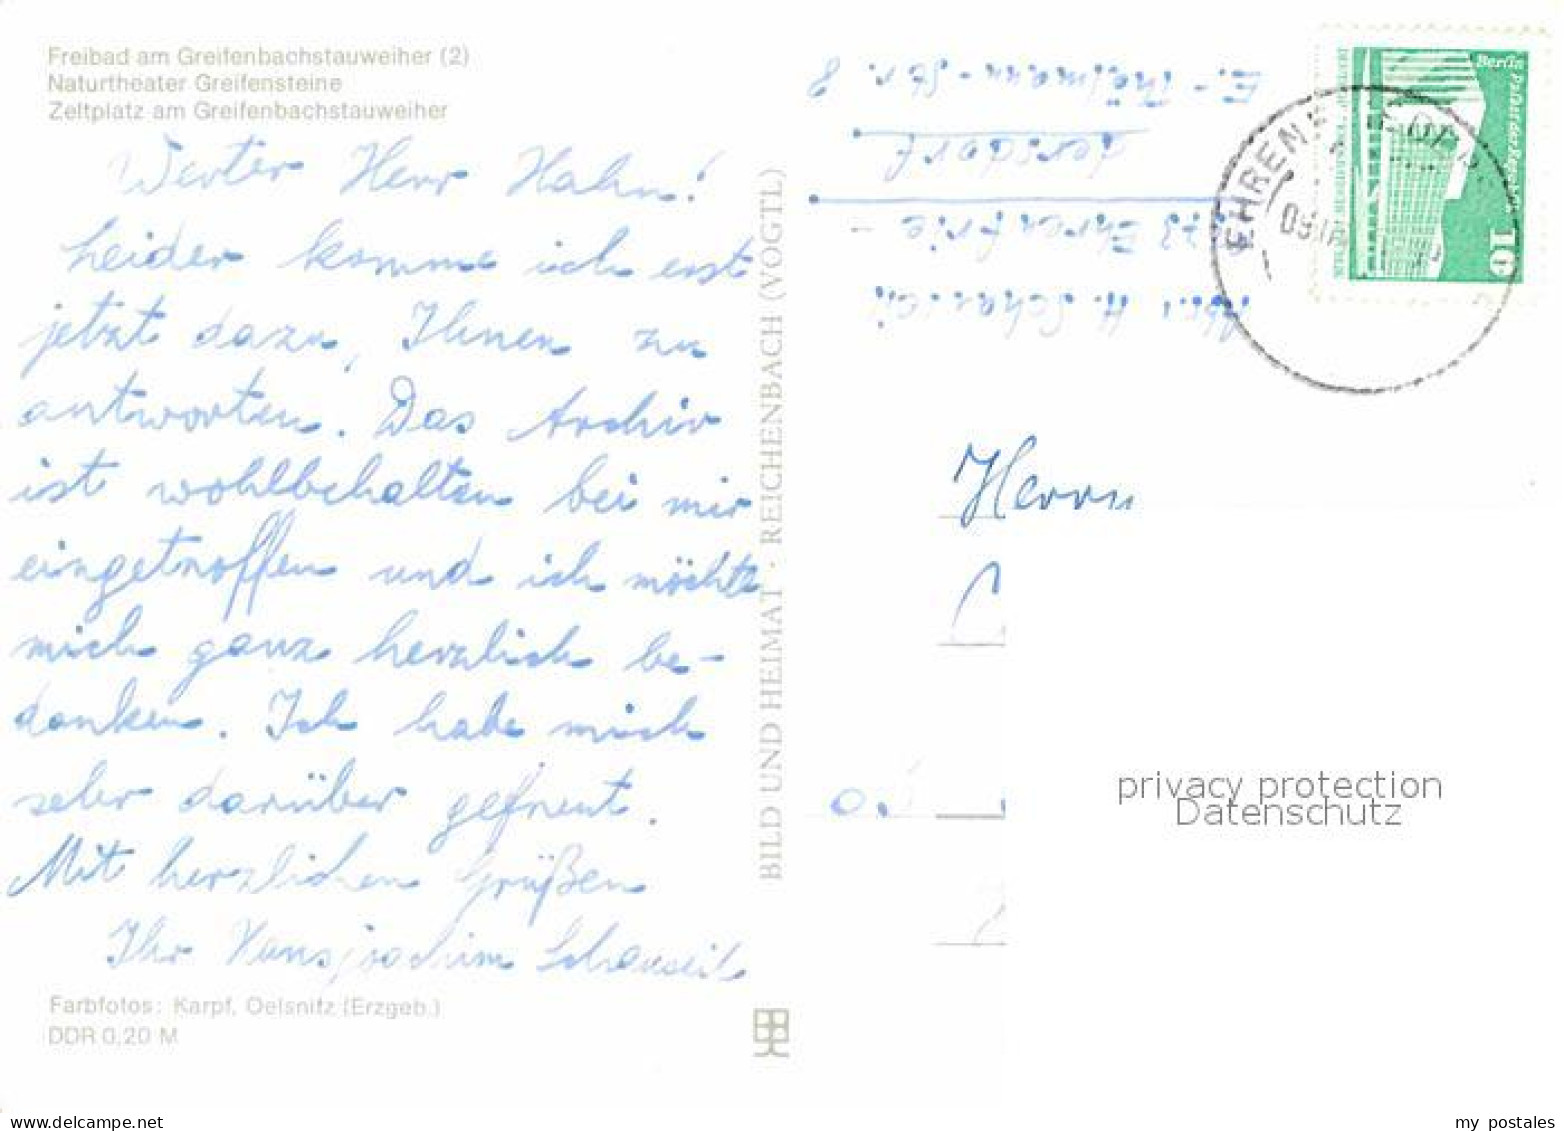 Freibad am Greifenbachstauweiher (2)
Naturtheater Greifensteine
Zeltplatz am Greifenbachstauweiher
Werter Herr Hahn!
Leider komme ich erst
jetzt dazu, Ihnen zu
antworten. Das Archiv
ist wohlbehalten bei mir
eingetroffen und ich möchte
mich ganz herzlich be-
danken. Ich habe mich
sehr darüber gefreut.
Mit herzlichen Grüßen
Ihr Hansjoachim Schauseil
Farbfotos: Karpf, Oelsnitz (Erzgeb.)
DDR 0,20 M
BILD UND HEIMAT · REICHENBACH (VOGTL)
Abs. H. Schauseil
Ehrenfrie-
dersdorf
E.-Thälmann-Str. 8
Berlin, Palast der Republik
10
Herrn
privacy protection
Datenschutz
my postales